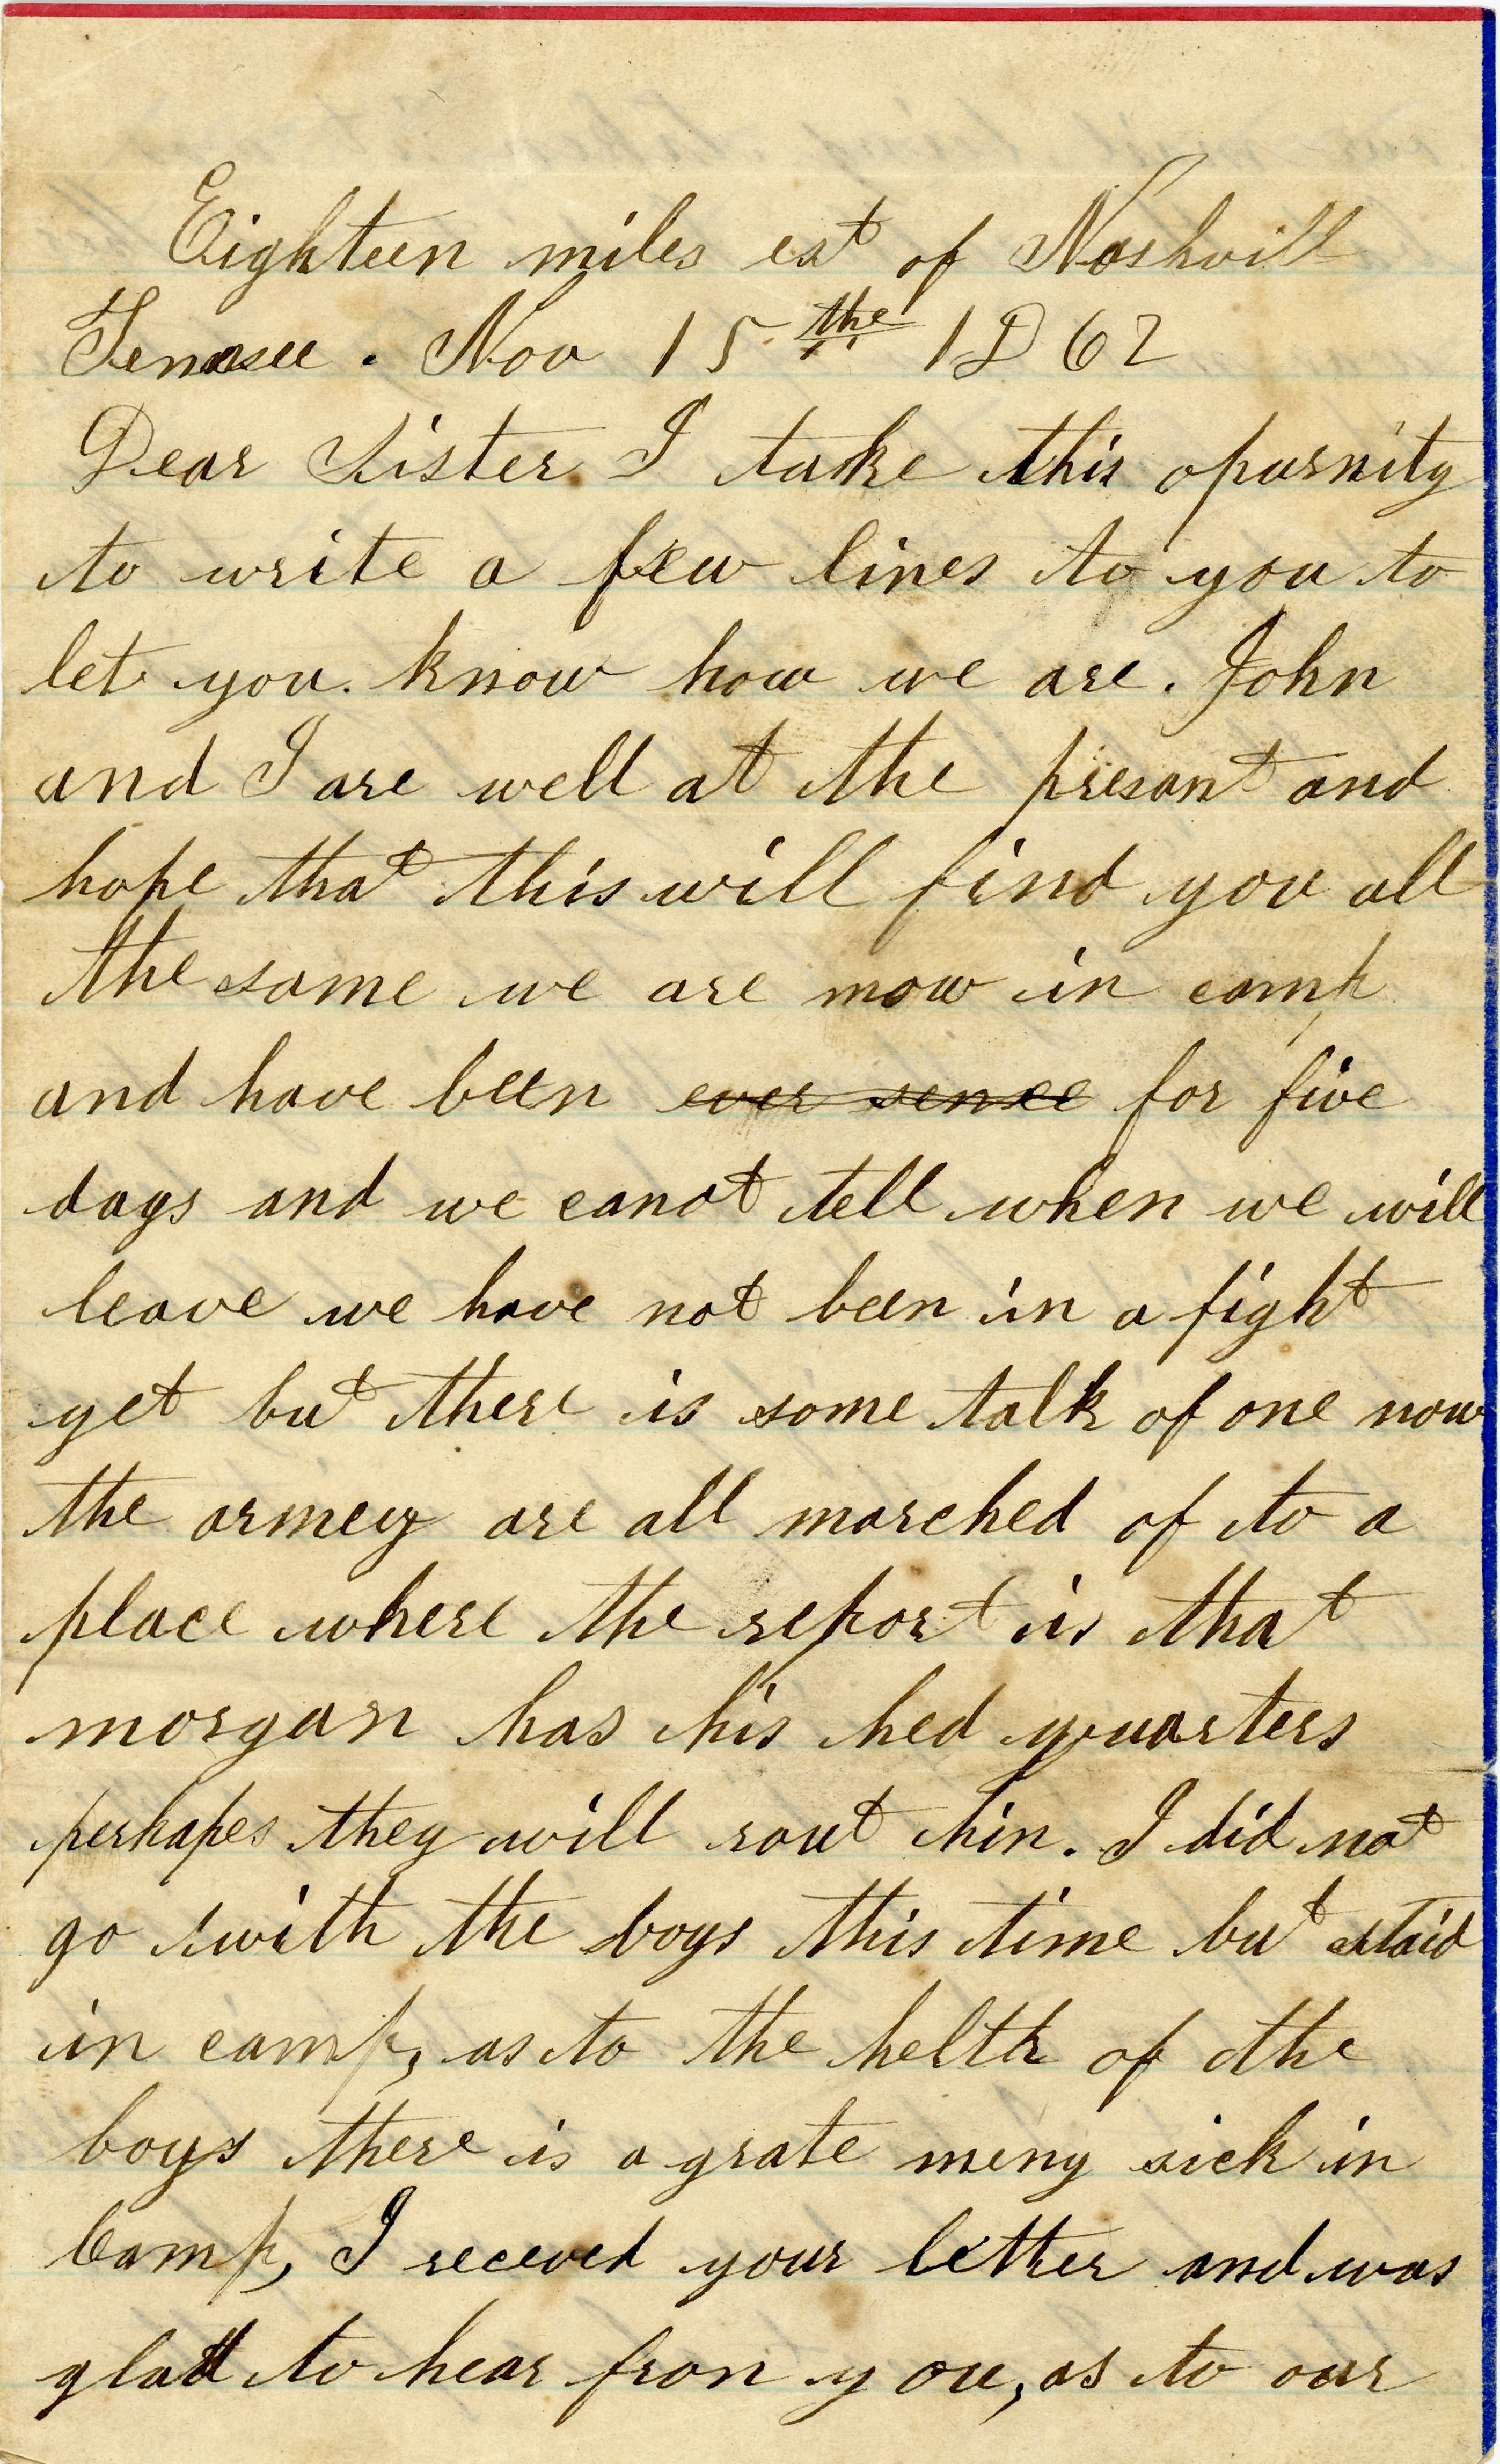 Eighteen miles est of Nashvill
Tennasee . Nov 15the 1862
Dear Sister I take this opurnity
to write a few lines to you to
let you. know how we are. John
and I are well at the presant and
hope that this will find you all
the same we are now in camp
and have been ever sence for five
days and we canot tell when we will
leave we have not been in a fight
yet but there is some talk of one now
the armey are all marched of to a
place where the report is that
morgan has his hed quarters
perhapes they will rout hin. I did not
go with the boys this time but staid
in camp, as to the helth of the
boys there is a grate meny sick in
Camp, I receved your letter and was
glad to hear fron you, as to our